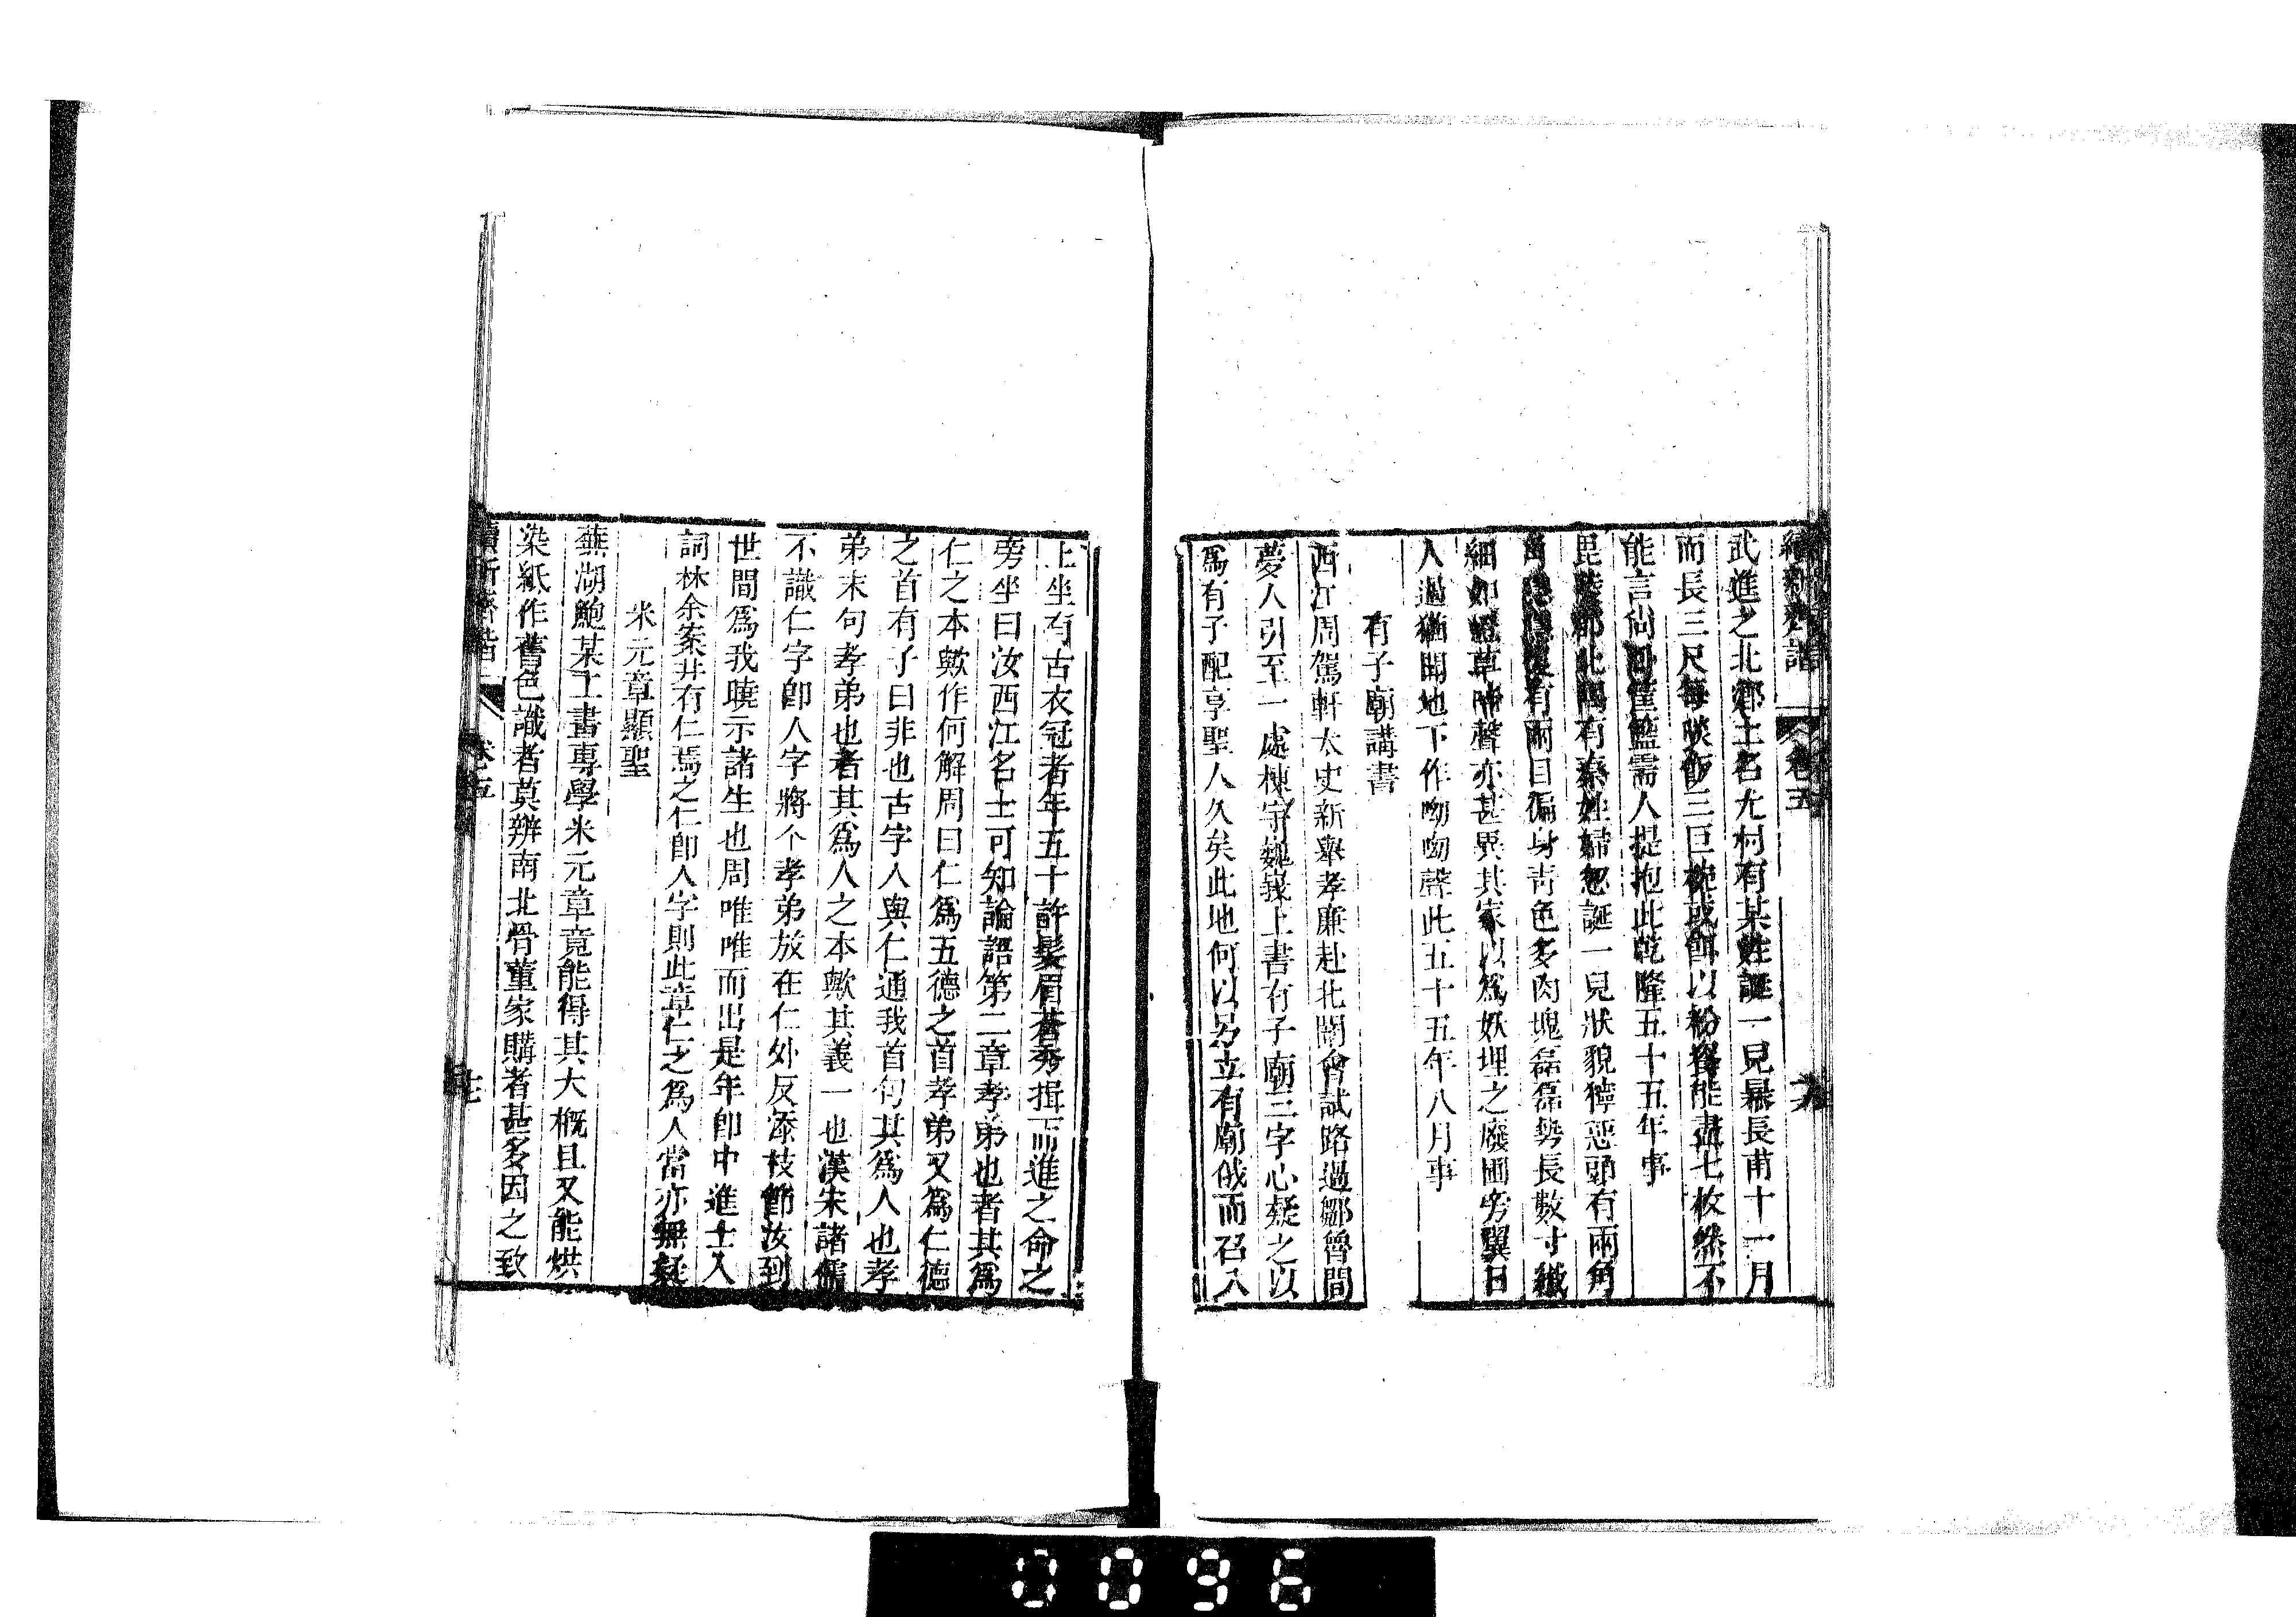 續新齊諧　卷五
武進之北鄉土名尤村有某姓誕一兒暴長甫十一月
而長三尺每啖飯三巨碗或餌以粉餈能盡七枚然不
能言尙臥筐籃需人提抱此乾隆五十五年事
毘陵郡北隅有秦姓婦忽誕一兒狀貌獰惡頭有兩角
有兩目徧身靑色多肉塊磊磊勢長數寸纖
細如草啼聲亦甚異其家以爲妖埋之廢圃旁翼日
人過猶聞地下作呦呦聲此五十五年八月事
有子廟講書
西江周駕軒太史新舉孝廉赴北闈會試路過鄒魯間
夢人引至一處棟宇巍峩上書有子廟三字心疑之以
爲有子配享聖人久矣此地何以另立有廟俄而召入
上坐有古衣冠者年五十許鬚眉蒼秀揖而進之命之
旁坐曰汝西江名士可知論語第二章孝弟也者其爲
仁之本歟作何解周曰仁爲五德之首孝弟又爲仁德
之首有子曰非也古字人與仁通我首句其爲人也孝
弟末句孝弟也者其爲人之本歟其義一也漢宋諸儒
不識仁字卽人字將个孝弟放在仁外反添枝節汝到
世間爲我曉示諸生也周唯唯而出是年卽中進士入
詞林余案井有仁焉之仁卽人字則此章仁之爲人當亦無疑
米元章顯聖
蕪湖鮑某工書專學米元章竟能得其大槪且又能烘
染紙作舊色識者莫辨南北骨董家購者甚多因之致
續新齊諧　卷五